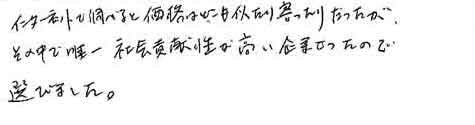 インターネットで調べると価格はどこも似たり寄ったりだったが、
その中で唯一社会貢献性が高い企業だったので
選びました。